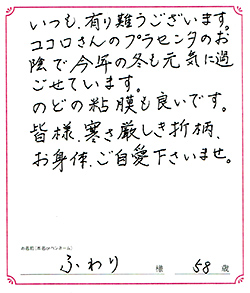 いつも、有り難うございます。
ココロさんのプラセンタのお
陰で今年の冬も元気に過
ごせています。
のどの粘膜も良いです。
皆様、寒さ厳しき折柄、
お身体、ご自愛下さいませ。
お名前(本名orペンネーム)
ふわり 様 58 歳